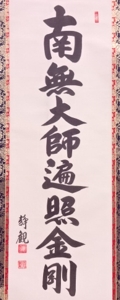 南無大師遍照金剛
静観